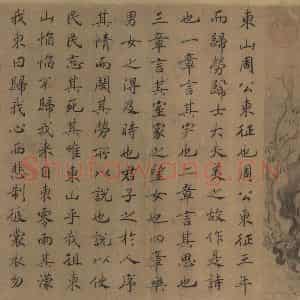 東山周公東征也周公東征三年
而歸勞歸士大夫美之故作是詩
也一章言其完也二章言其思也
三章言其室家之望女也四章樂
男女之得及時也君子之於人序
其情而閔其勞所以說也說以使
民民忘其死其唯東山乎我徂東
山慆慆不歸我來自東零雨其濛
我東曰歸我心西悲制彼裳衣勿